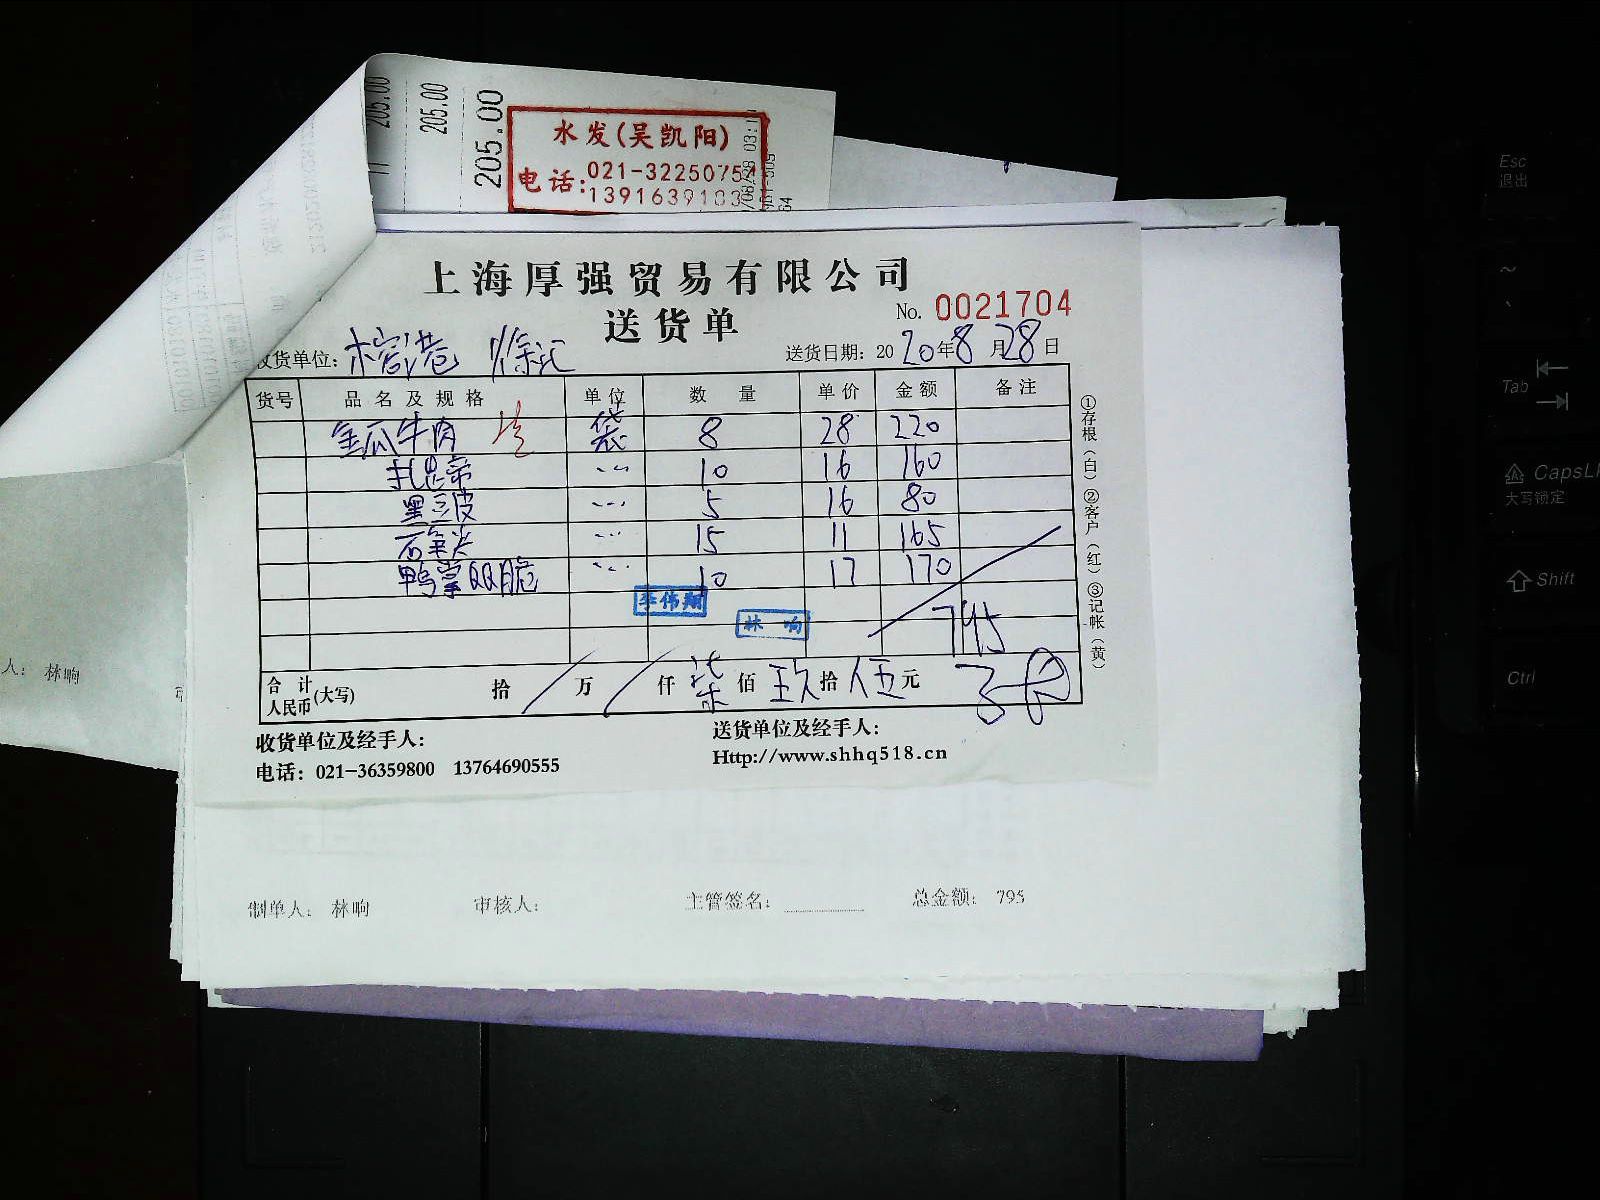 205.00
205.00
205.00
水发(吴凯阳)
电话:021-3225075
1391639103
上海厚强贸易有限公司
送货单
No. 0021704
收货单位: 榕港 徐汇
送货日期: 2020年8月28日
货号 品名及规格 单位 数量 单价 金额 备注
金瓜牛肉 袋 8 28 220
10 16 160
黑豆皮 5 16 80
15 11 165
鸭掌QQ脆 10 17 170
李伟翔
林响
795
合计人民币(大写) 拾 万 仟 柒 佰 玖 拾 伍 元
①存根(白)②客户(红)③记帐(黄)
收货单位及经手人:
送货单位及经手人:
电话: 021-36359800 13764690555
Http://www.shhq518.cn
人: 林响
制单人: 林响 审核人: 主管签名: 总金额: 795
Esc
退出
~
Tab
CapsL
大写锁定
Shift
Ctrl